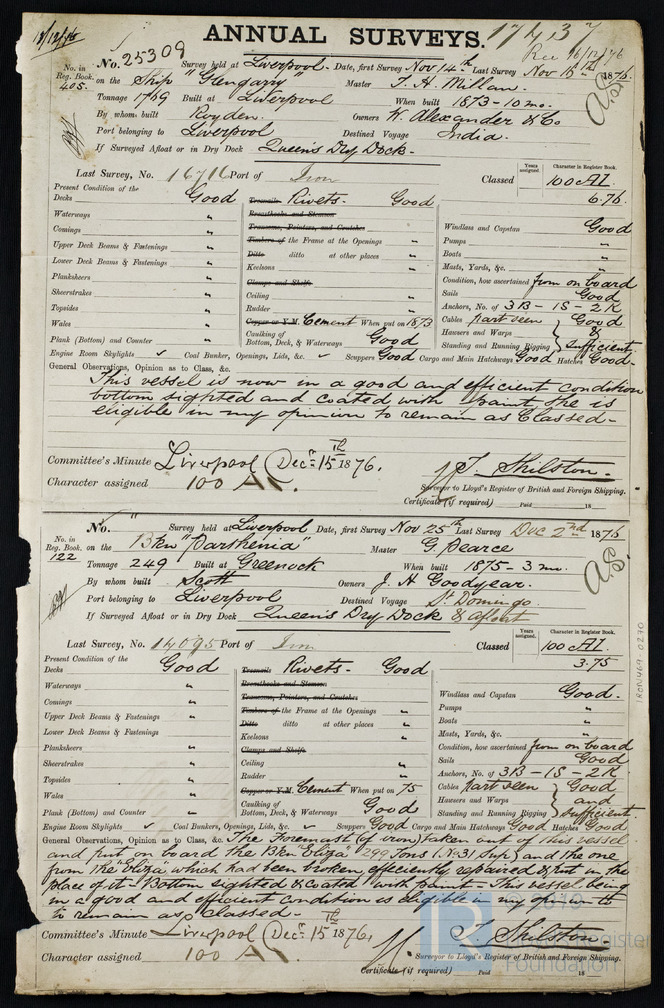 13/12/76
ANNUAL SURVEYS. 17437
Rec 16/12/76
No. 25309 Survey held at Liverpool. Date, first Survey Nov 14th Last Survey Nov 15th 1876.
No. in Reg. Book. 405. on the Ship "Glengarry" Master T. H. Millan.
Tonnage 1769 Built at Liverpool When built 1873 - 10 mo.
By whom built Royden. Owners W. Alexander & Co
Port belonging to Liverpool Destined Voyage India.
If Surveyed Afloat or in Dry Dock Queen's Dry Dock.
Last Survey, No. 16716 Port of Iron Classed Years assigned. Character in Register Book. 100 A1.
6.76.
Present Condition of the Decks Good Treenails Rivets. Good
Waterways " Breasthooks and Stemson Windlass and Capstan Good
Comings " Transoms, Pointers, and Crutches Pumps "
Upper Deck Beams & Fastenings " Timbers of the Frame at the Openings " Boats "
Lower Deck Beams & Fastenings " Ditto ditto at other places " Masts, Yards, &c. "
Planksheers " Keelsons " Condition, how ascertained from on board
Sheerstrakes " Clamps and Shelfs Sails Good
Topsides " Ceiling " Anchors, No. of 3B - 1S - 2K
Wales " Rudder " Cables part seen Good
Plank (Bottom) and Counter " Copper or Y.M. Cement When put on 1873 Hawsers and Warps &
Caulking of Bottom, Deck, & Waterways Good Standing and Running Rigging sufficient.
Engine Room Skylights ✓ Coal Bunker, Openings, Lids, &c. ✓ Scuppers Good Cargo and Main Hatchways Good Hatches Good.
General Observations, Opinion as to Class, &c.
This vessel is now in a good and efficient condition
bottom sighted and coated with paint She is
eligible in my opinion to remain as Classed.
Committee's Minute Liverpool (Decr 15th 1876.
Character assigned 100 A1. T. Shilston.
Surveyor to Lloyd's Register of British and Foreign Shipping.
Certificate (if required) Paid 18
No. " Survey held at Liverpool Date, first Survey Nov 25th Last Survey Dec 2nd 1876
No. in Reg. Book. 122 on the Bkn "Parthenia" Master G. Pearce
Tonnage 249 Built at Greenock When built 1875 - 3 mo.
By whom built Scott Owners J. H Goodyear.
Port belonging to Liverpool Destined Voyage St Domingo.
If Surveyed Afloat or in Dry Dock Queen's Dry Dock & afloat
Last Survey, No. 14095 Port of Iron Classed Years assigned. Character in Register Book. 100 A1.
3.75
Present Condition of the Decks Good Treenails Rivets. Good
Waterways " Breasthooks and Stemson Windlass and Capstan Good.
Comings " Transoms, Pointers, and Crutches Pumps "
Upper Deck Beams & Fastenings " Timbers of the Frame at the Openings " Boats "
Lower Deck Beams & Fastenings " Ditto ditto at other places " Masts, Yards, &c. "
Planksheers " Keelsons " Condition, how ascertained from on board
Sheerstrakes " Clamps and Shelfs Sails Good
Topsides " Ceiling " Anchors, No. of 3B - 1S - 2K
Wales " Rudder " Cables part seen Good
Plank (Bottom) and Counter " Copper or Y.M. Cement When put on 75 Hawsers and Warps and
Caulking of Bottom, Deck, & Waterways Good Standing and Running Rigging sufficient.
Engine Room Skylights ✓ Coal Bunker, Openings, Lids, &c. ✓ Scuppers Good Cargo and Main Hatchways Good Hatches Good
General Observations, Opinion as to Class, &c. The Foremast (of iron) taken out of this vessel
and put on board the Bkn "Eliza" 299 Tons (No 31 Sup) and the one
from the "Eliza" which had been broken, efficiently repaired & put in the
place of it. Bottom sighted & coated with paint. This vessel being
in a good and efficient condition is eligible in my opin to
to remain as classed.
Committee's Minute Liverpool (Decr 15th 1876.
Character assigned 100 A1 T. Shilston
Surveyor to Lloyd's Register of British and Foreign Shipping.
Certificate (if required) Paid 18
IRON469-0270
LR
Register
Foundation